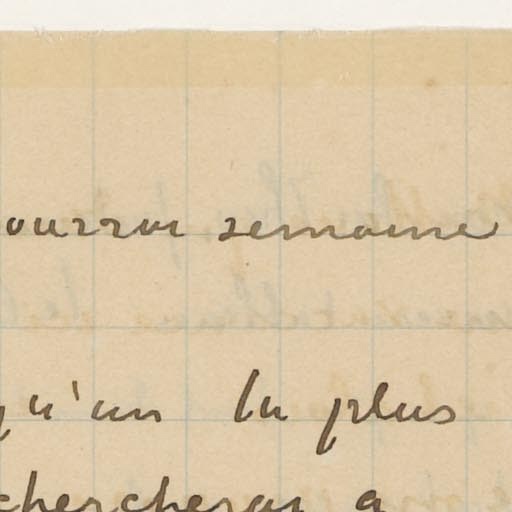 ourrai semaine
qu'un la plus
chercherai a